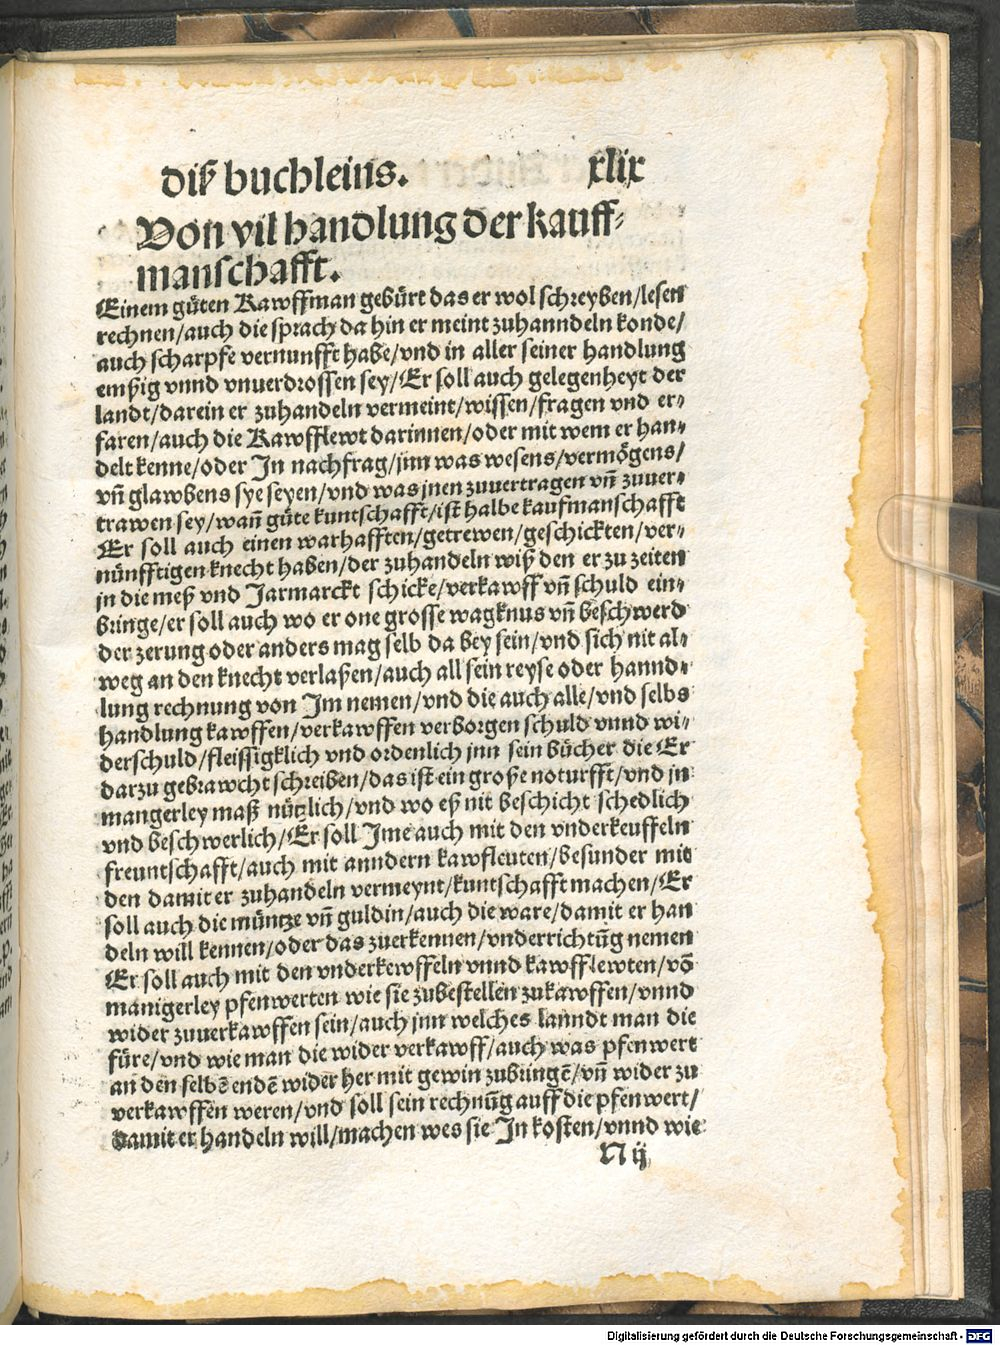 diß buchleins. xlix
Von vil handlung der kauff-
manschafft.
Einem gůten Kawffman gebürt das er wol schreyben/lesen
rechnen/auch die sprach da hin er meint zuhanndeln konde/
auch scharpfe vernunfft habe/vnd in aller seiner handlung
emßig vnnd vnuerdrossen sey/Er soll auch gelegenheyt der
landt/darein er zuhandeln vermeint/wissen/fragen vnd er-
faren/auch die Kawfflewt darinnen/oder mit wem er han-
delt kenne/oder In nachfrag/jnn was wesens/vermögens/
vñ glawbens sye seyen/vnd was jnen zuuertragen vñ zuuer-
trawen sey/wañ gůte kuntschafft/ist halbe kaufmanschafft
Er soll auch einen warhafften/getrewen/geschickten/ver-
nünfftigen knecht haben/der zuhandeln wiß den er zu zeiten
jn die meß vnd Jarmarckt schicke/verkawff vñ schuld ein-
bringe/er soll auch wo er one grosse wagknus vñ beschwerd
der zerung oder anders mag selb da bey sein/vnd sich nit al-
weg an den knecht verlaßen/auch all sein reyse oder hannd-
lung rechnung von Im nemen/vnd die auch alle/vnd selbs
handlung kawffen/verkawffen verborgen schuld vnnd wi-
derschuld/fleissigklich vnd ordenlich jnn sein bücher die Er
darzu gebrawcht schreiben/das ist ein große noturfft/vnd jn
mangerley maß nützlich/vnd wo eß nit beschicht schedlich
vnd beschwerlich/Er soll Ime auch mit den vnderkeuffeln
freuntschafft/auch mit anndern kawfleuten/besunder mit
den damit er zuhandeln vermeynt/kuntschafft machen/Er
soll auch die müntze vñ guldin/auch die ware/damit er han
deln will kennen/oder das zuerkennen/vnderrichtūg nemen
Er soll auch mit den vnderkewffeln vnnd kawfflewten/võ
manigerley pfenwerten wie sie zubestellen zukawffen/vnnd
wider zuuerkawffen sein/auch jnn welches lanndt man die
füre/vnd wie man die wider verkawff/auch was pfenwert
an den selbē endē wider her mit gewin zubringē/vñ wider zu
verkawffen weren/vnd soll sein rechnūg auff die pfenwert/
damit er handeln will/machen wes sie In kosten/vnnd wie
N ij
Digitalisierung gefördert durch die Deutsche Forschungsgemeinschaft - DFG